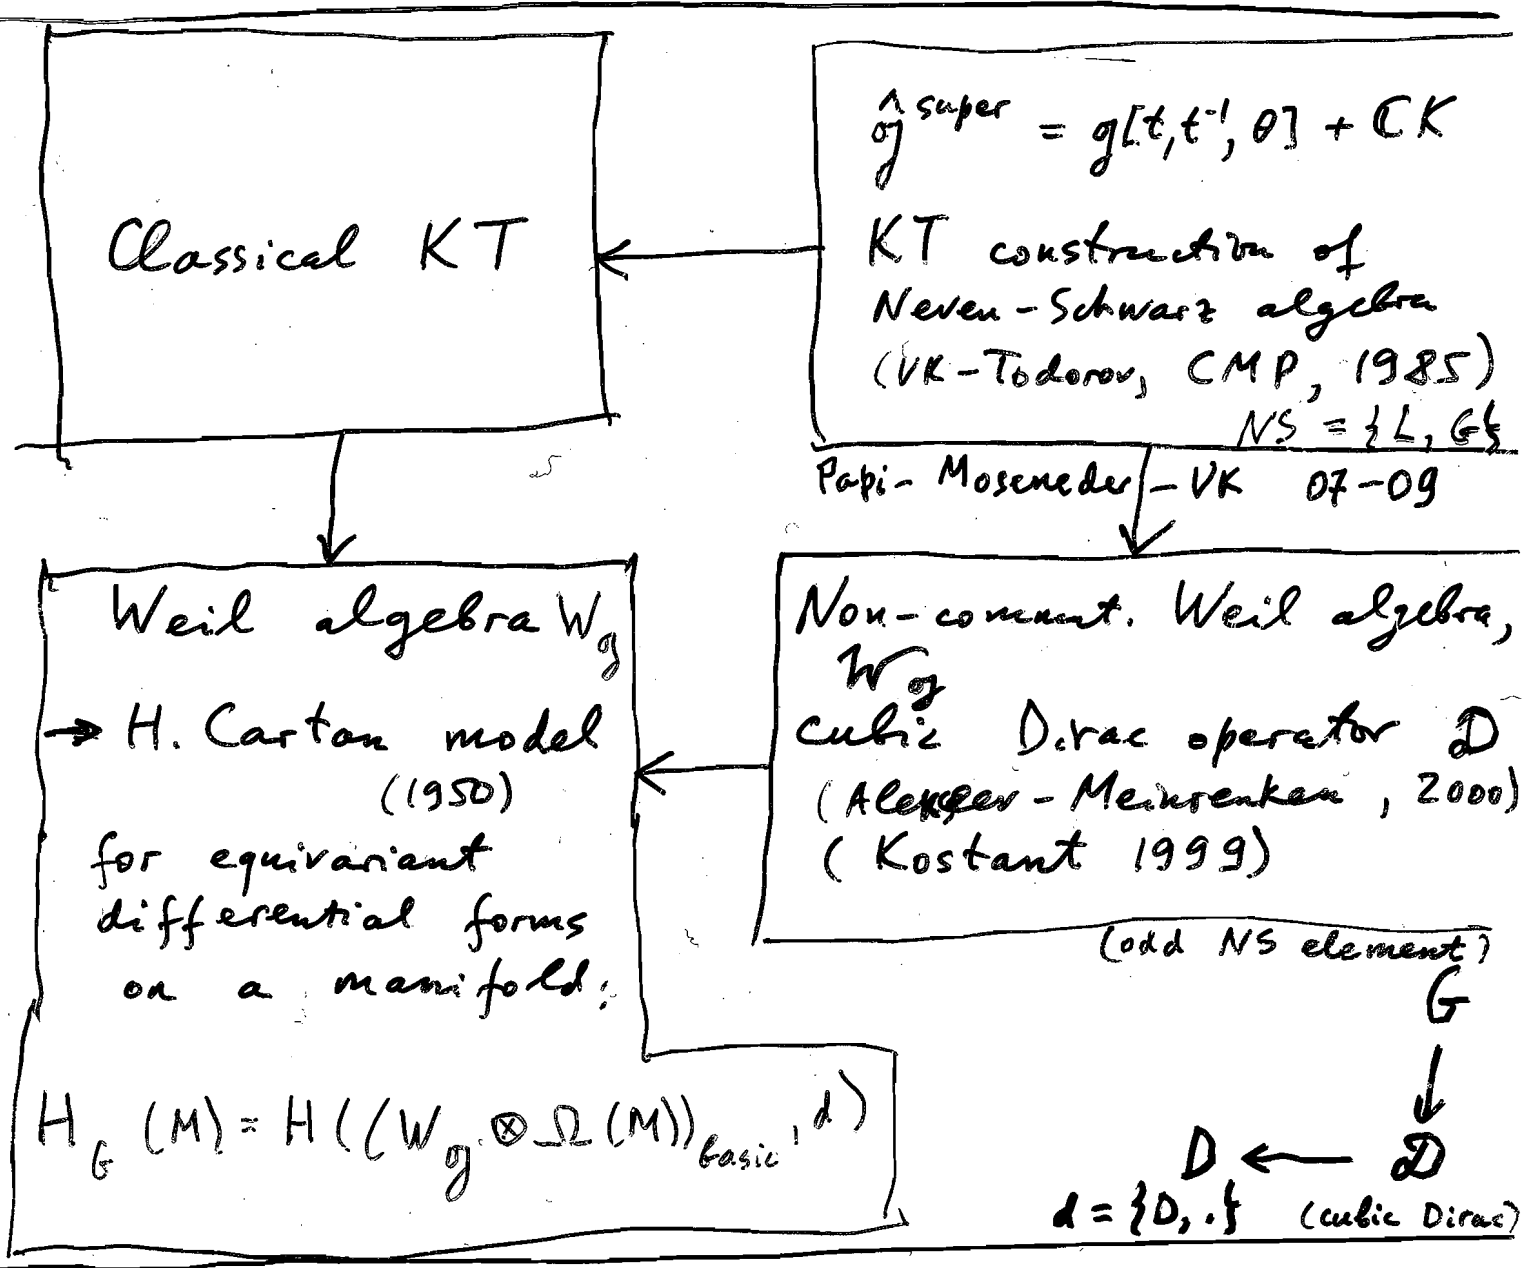 Classical KT
ĝ^super = g[t, t⁻¹, θ] + ℂK
KT construction of
Neveu-Schwarz algebra
(VK-Todorov, CMP, 1985)
NS = {L, G}
Papi-Moseneder-VK 07-09
Weil algebra W_g
→ H. Cartan model
(1950)
for equivariant
differential forms
on a manifold:
H_G (M) = H((W_g ⊗ Ω(M))_basic, d)
Non-commut. Weil algebra,
𝒲_g
cubic Dirac operator 𝒟
(Alekseev-Meinrenken, 2000)
(Kostant 1999)
(odd NS element)
G
↓
D ← 𝒟
d = {D, .} (cubic Dirac)